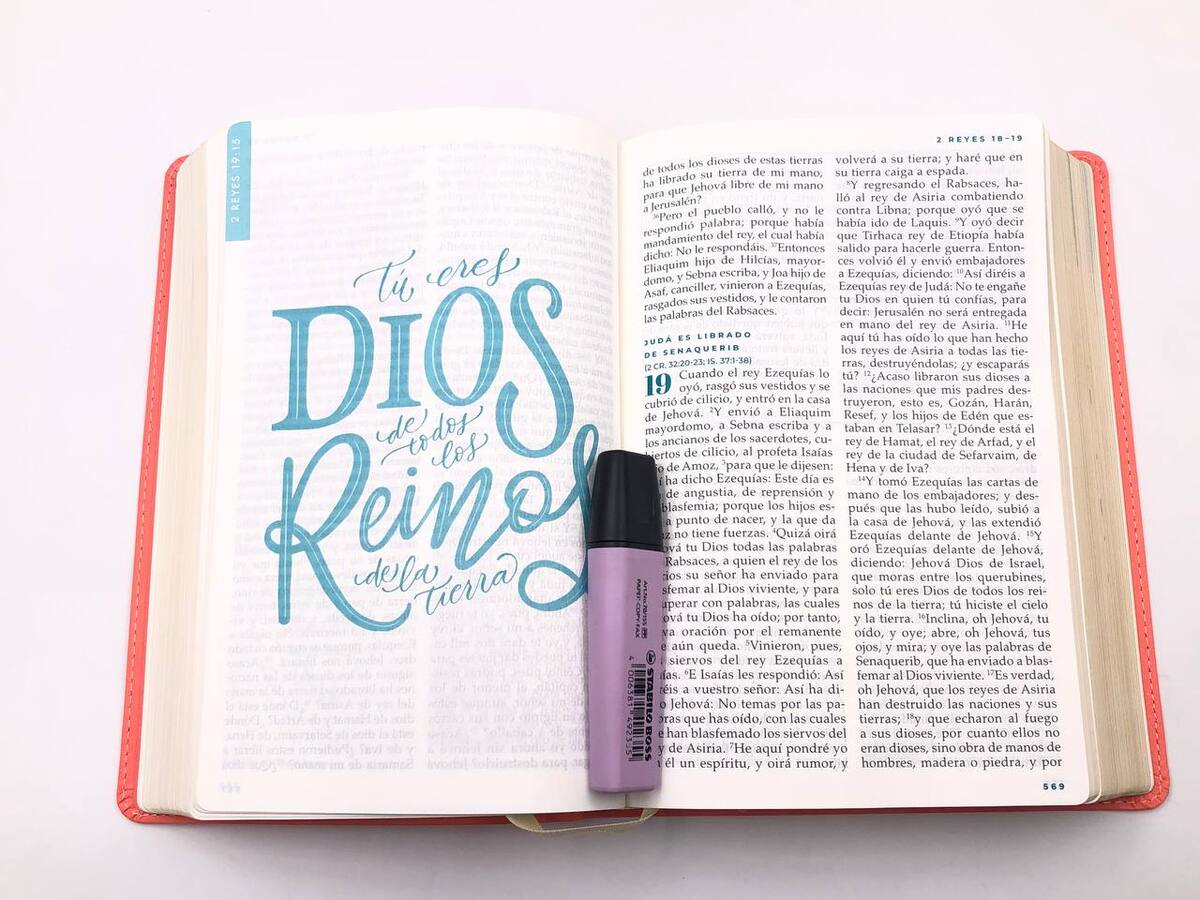 2 REYES 19:15
Tú eres
DIOS
de
todos
los
Reinos
de la
tierra
2 REYES 18–19
de todos los dioses de estas tierras
ha librado su tierra de mi mano,
para que Jehová libre de mi mano
a Jerusalén?
36Pero el pueblo calló, y no le
respondió palabra; porque había
mandamiento del rey, el cual había
dicho: No le respondáis. 37Entonces
Eliaquim hijo de Hilcías, mayor-
domo, y Sebna escriba, y Joa hijo de
Asaf, canciller, vinieron a Ezequías,
rasgados sus vestidos, y le contaron
las palabras del Rabsaces.
JUDÁ ES LIBRADO
DE SENAQUERIB
(2 CR. 32:20-23; IS. 37:1-38)
19 Cuando el rey Ezequías lo
oyó, rasgó sus vestidos y se
cubrió de cilicio, y entró en la casa
de Jehová. 2Y envió a Eliaquim
mayordomo, a Sebna escriba y a
los ancianos de los sacerdotes, cu-
biertos de cilicio, al profeta Isaías
de Amoz, 3para que le dijesen:
ha dicho Ezequías: Este día es
de angustia, de reprensión y
blasfemia; porque los hijos es-
a punto de nacer, y la que da
no tiene fuerzas. 4Quizá oirá
tu Dios todas las palabras
Rabsaces, a quien el rey de los
su señor ha enviado para
al Dios viviente, y para
con palabras, las cuales
tu Dios ha oído; por tanto,
oración por el remanente
aún queda. 5Vinieron, pues,
siervos del rey Ezequías a
6E Isaías les respondió: Así
a vuestro señor: Así ha di-
Jehová: No temas por las pa-
que has oído, con las cuales
han blasfemado los siervos del
de Asiria. 7He aquí pondré yo
él un espíritu, y oirá rumor, y
volverá a su tierra; y haré que en
su tierra caiga a espada.
8Y regresando el Rabsaces, ha-
lló al rey de Asiria combatiendo
contra Libna; porque oyó que se
había ido de Laquis. 9Y oyó decir
que Tirhaca rey de Etiopía había
salido para hacerle guerra. Enton-
ces volvió él y envió embajadores
a Ezequías, diciendo: 10Así diréis a
Ezequías rey de Judá: No te engañe
tu Dios en quien tú confías, para
decir: Jerusalén no será entregada
en mano del rey de Asiria. 11He
aquí tú has oído lo que han hecho
los reyes de Asiria a todas las tie-
rras, destruyéndolas; ¿y escaparás
tú? 12¿Acaso libraron sus dioses a
las naciones que mis padres des-
truyeron, esto es, Gozán, Harán,
Resef, y los hijos de Edén que es-
taban en Telasar? 13¿Dónde está el
rey de Hamat, el rey de Arfad, y el
rey de la ciudad de Sefarvaim, de
Hena y de Iva?
14Y tomó Ezequías las cartas de
mano de los embajadores; y des-
pués que las hubo leído, subió a
la casa de Jehová, y las extendió
Ezequías delante de Jehová. 15Y
oró Ezequías delante de Jehová,
diciendo: Jehová Dios de Israel,
que moras entre los querubines,
solo tú eres Dios de todos los rei-
nos de la tierra; tú hiciste el cielo
y la tierra. 16Inclina, oh Jehová, tu
oído, y oye; abre, oh Jehová, tus
ojos, y mira; y oye las palabras de
Senaquerib, que ha enviado a blas-
femar al Dios viviente. 17Es verdad,
oh Jehová, que los reyes de Asiria
han destruido las naciones y sus
tierras; 18y que echaron al fuego
a sus dioses, por cuanto ellos no
eran dioses, sino obra de manos de
hombres, madera o piedra, y por
569
Art.No.70/155
PAPER-COPY-FAX
STABILO BOSS
4 006381 492355